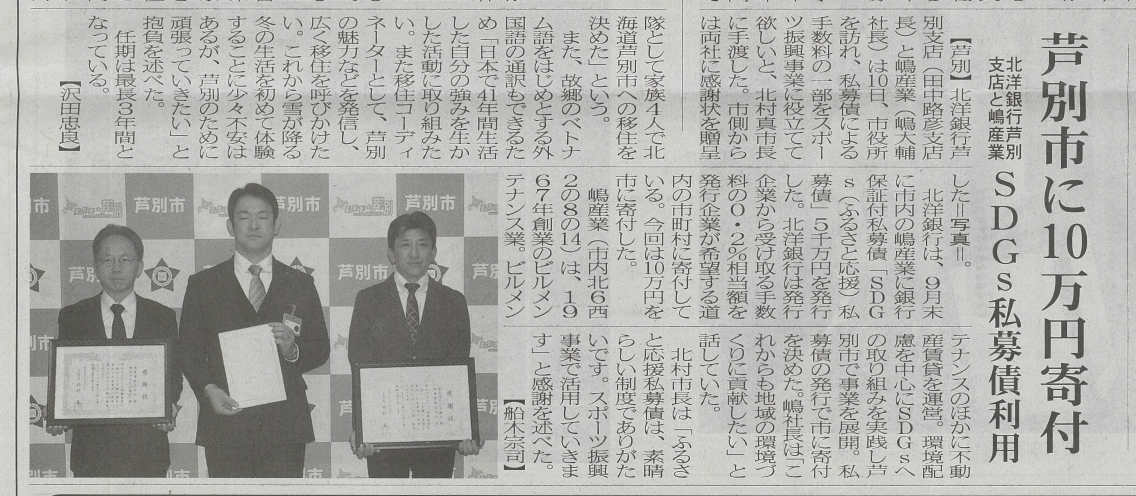 芦別市に10万円寄付
北洋銀行芦別
支店と嶋産業
SDGs私募債利用
【芦別】北洋銀行芦
別支店（田中路彦支店
長）と嶋産業（嶋大輔
社長）は10日、市役所
を訪れ、私募債による
手数料の一部をスポー
ツ振興事業に役立てて
欲しいと、北村真市長
に手渡した。市側から
は両社に感謝状を贈呈
した＝写真＝。
北洋銀行は、9月末
に市内の嶋産業に銀行
保証付私募債「SDG
s（ふるさと応援）私
募債」5千万円を発行
した。北洋銀行は発行
企業から受け取る手数
料の0・2％相当額を
発行企業が希望する道
内の市町村に寄付して
いる。今回は10万円を
市に寄付した。
嶋産業（市内北6西
2の8の14）は、19
67年創業のビルメン
テナンス業。ビルメン
テナンスのほかに不動
産賃貸を運営。環境配
慮を中心にSDGsへ
の取り組みを実践し芦
別市で事業を展開。私
募債の発行で市に寄付
を決めた。嶋社長は「こ
れからも地域の環境づ
くりに貢献したい」と
話していた。
北村市長は「ふるさ
と応援私募債は、素晴
らしい制度でありがた
いです。スポーツ振興
事業で活用していきま
す」と感謝を述べた。
【船木宗司】
隊として家族4人で北
海道芦別市への移住を
決めた」という。
また、故郷のベトナ
ム語をはじめとする外
国語の通訳もできるた
め「日本で41年間生活
した自分の強みを生か
した活動に取り組みた
い。また移住コーディ
ネーターとして、芦別
の魅力などを発信し、
広く移住を呼びかけた
い。これから雪が降る
冬の生活を初めて体験
することに少々不安は
あるが、芦別のために
頑張っていきたい」と
抱負を述べた。
任期は最長3年間と
なっている。
【沢田忠良】
芦別市
芦別市
芦別市
芦別市
感謝状
感謝状